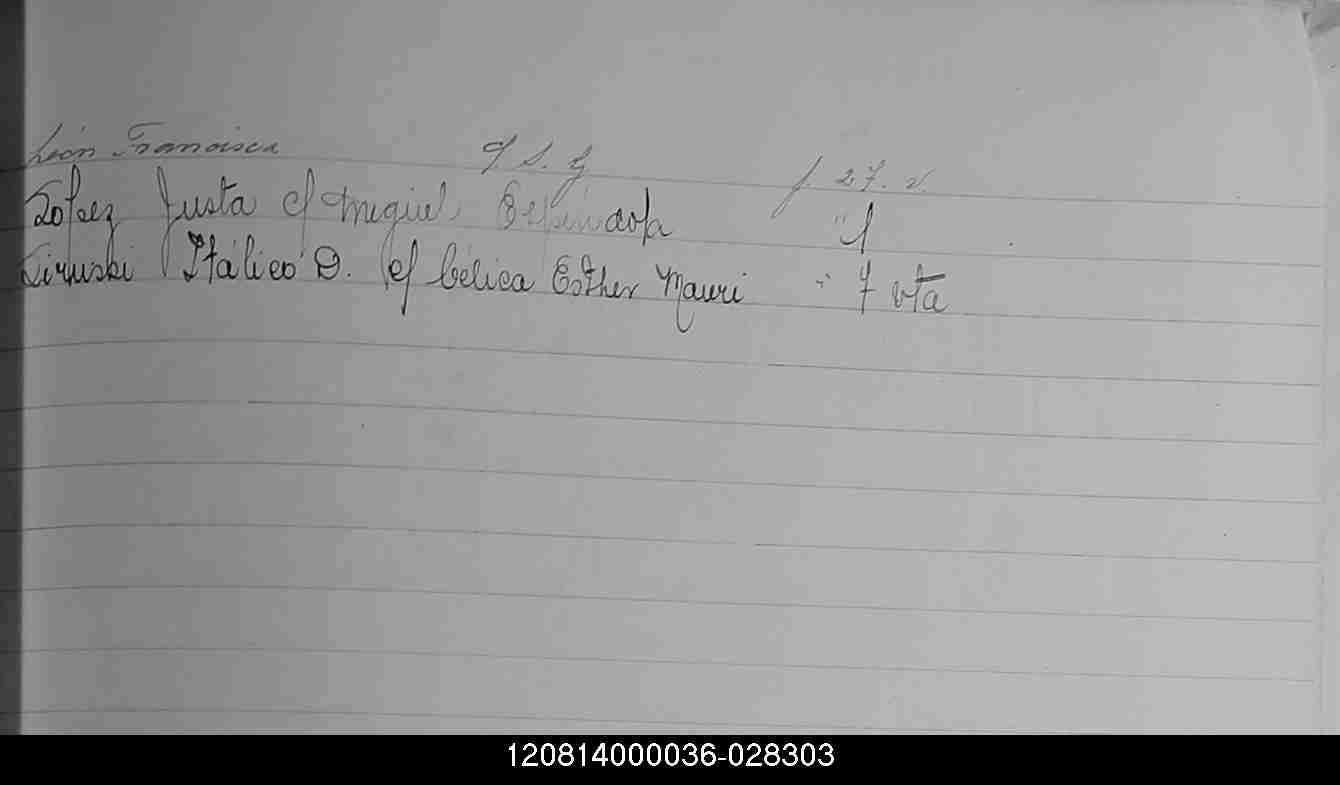 León Francisca c/. S. G f. 27. v.
Lopez Justa c/ Miguel Espindola " 1
Liruski Itálico D. c/ Célica Esther Mauri " 7 vta
120814000036-028303